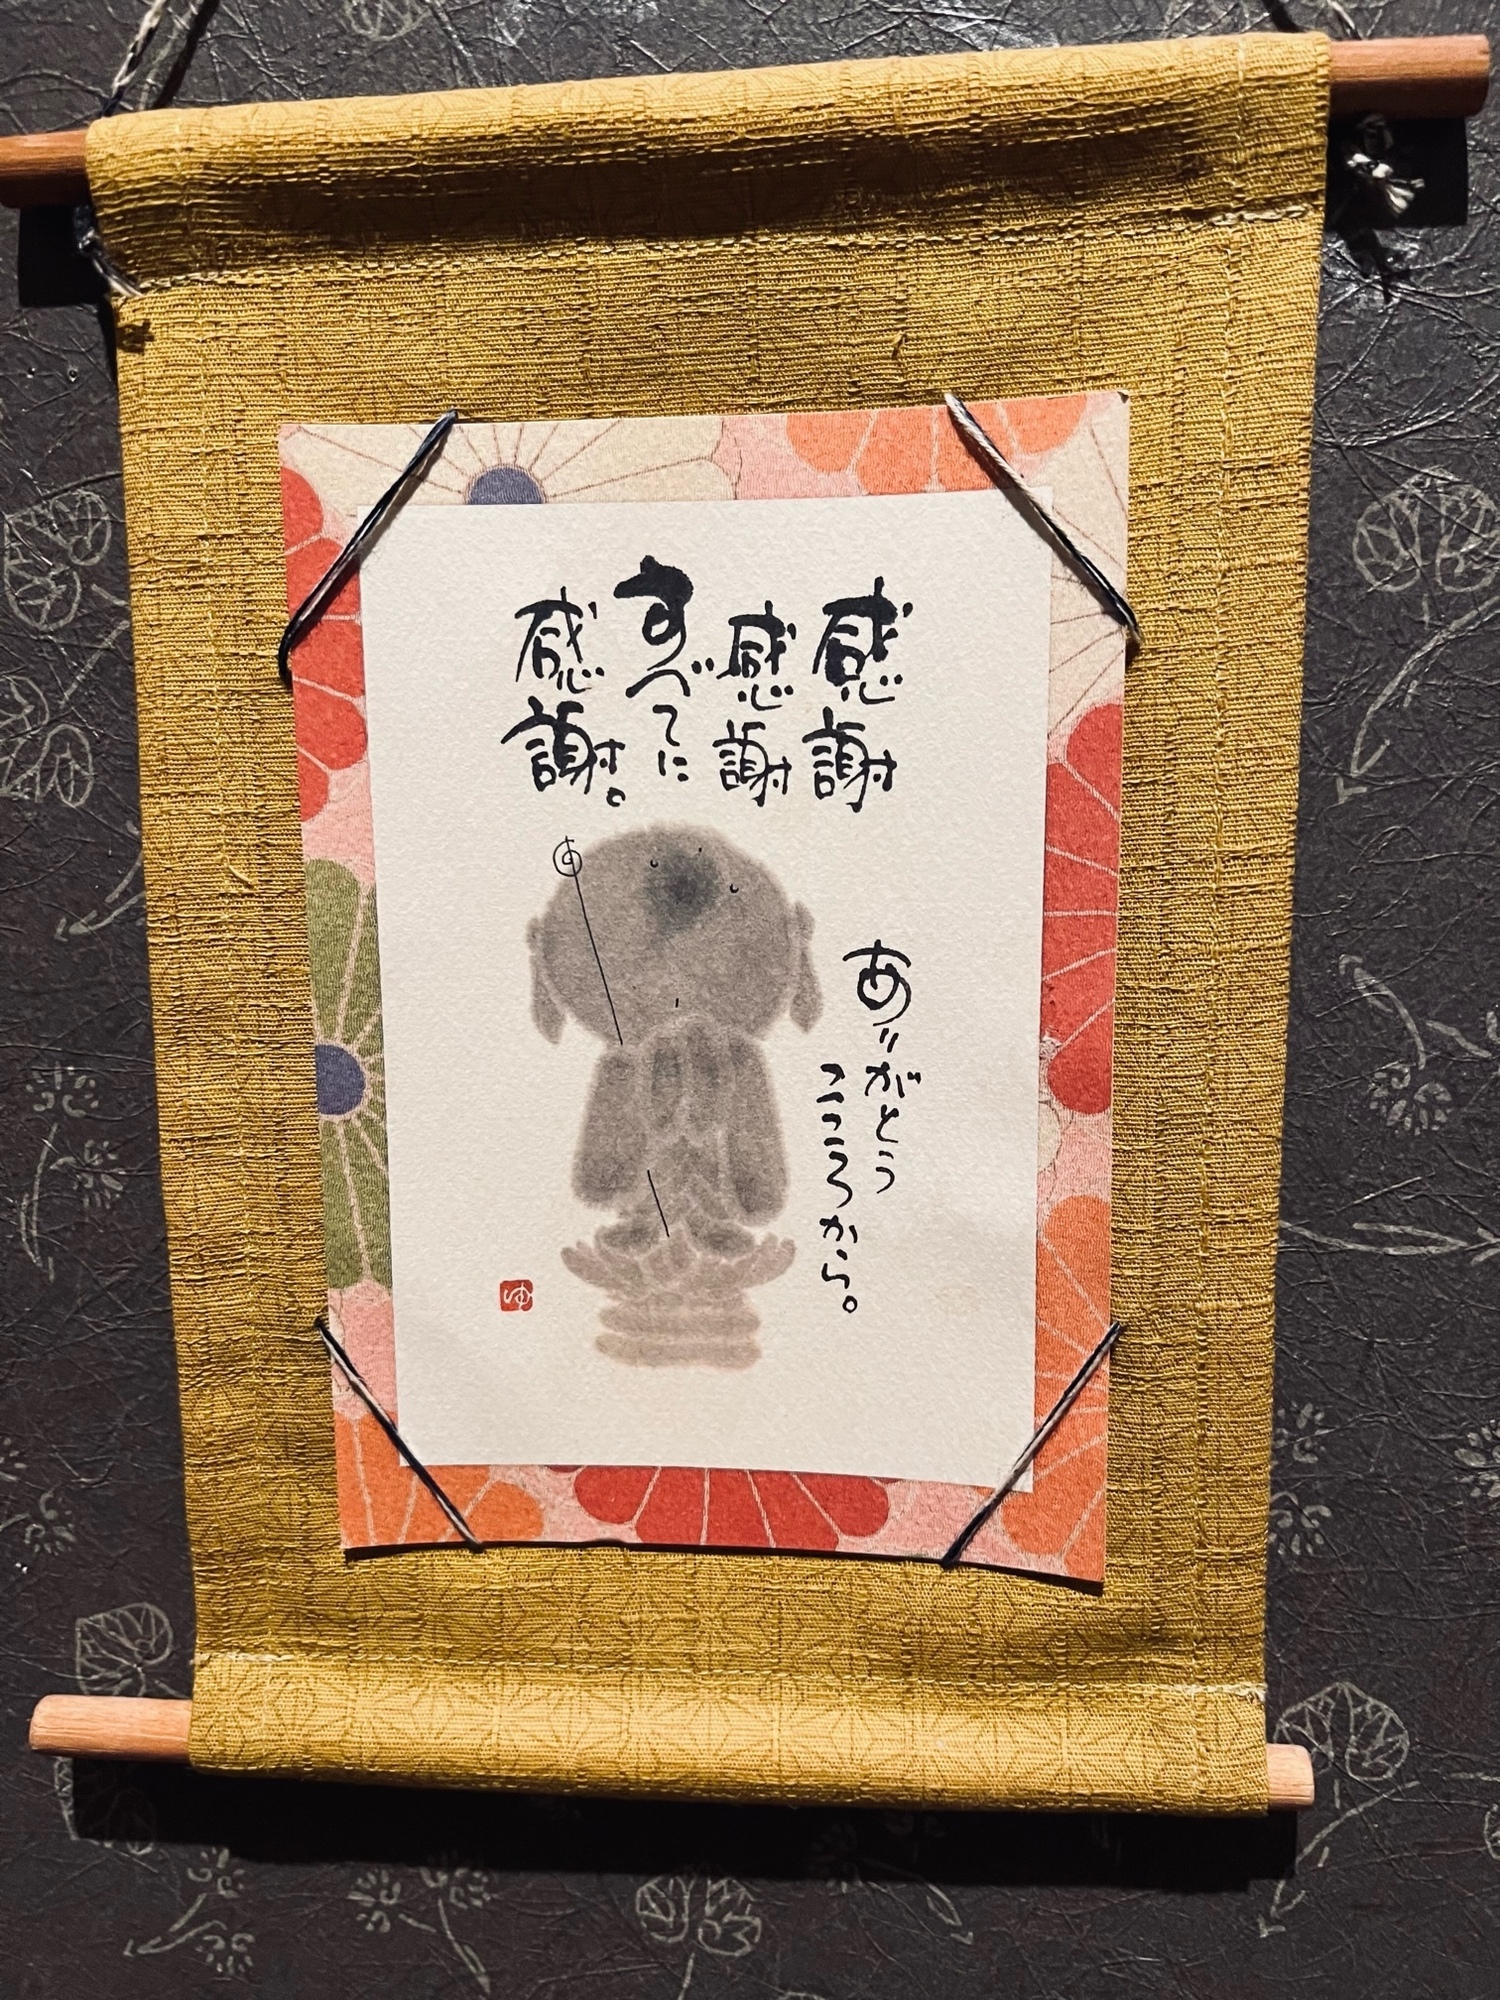 感謝
感謝
すべてに
感謝。
ありがとう
こころから。
ゆ